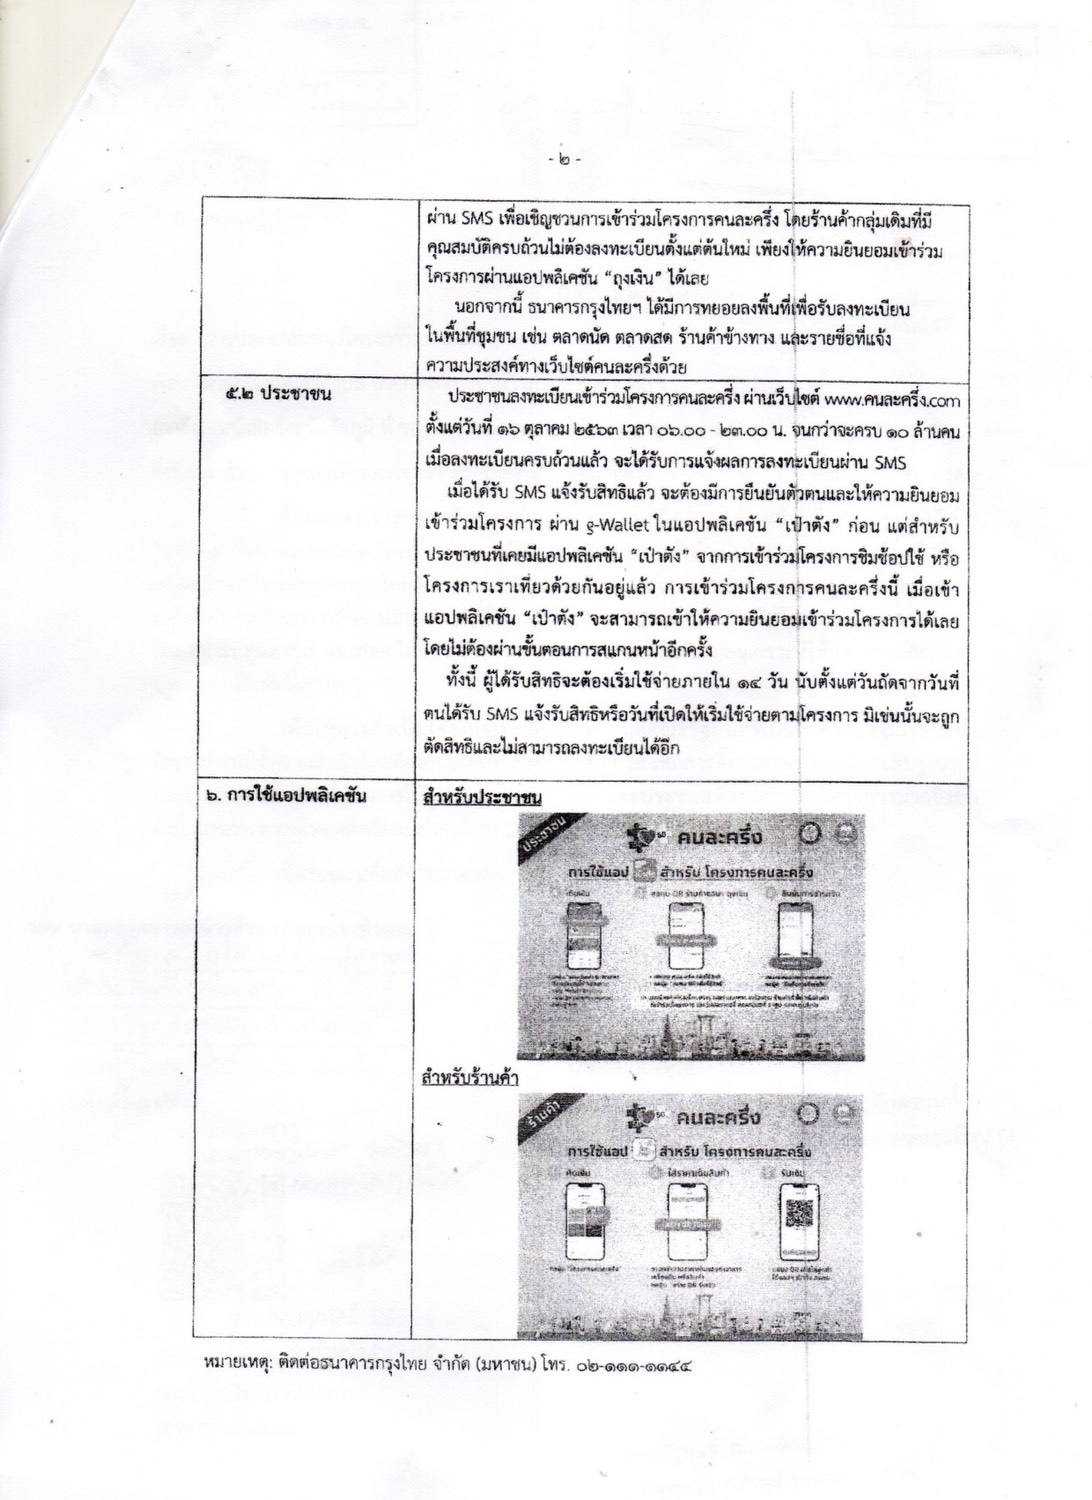 - ๒ -
ผ่าน SMS เพื่อเชิญชวนการเข้าร่วมโครงการคนละครึ่ง โดยร้านค้ากลุ่มเดิมที่มี
คุณสมบัติครบถ้วนไม่ต้องลงทะเบียนตั้งแต่ต้นใหม่ เพียงให้ความยินยอมเข้าร่วม
โครงการผ่านแอปพลิเคชัน “ถุงเงิน” ได้เลย
นอกจากนี้ ธนาคารกรุงไทยฯ ได้มีการทยอยลงพื้นที่เพื่อรับลงทะเบียน
ในพื้นที่ชุมชน เช่น ตลาดนัด ตลาดสด ร้านค้าข้างทาง และรายชื่อที่แจ้ง
ความประสงค์ทางเว็บไซต์คนละครึ่งด้วย
๕.๒ ประชาชน
ประชาชนลงทะเบียนเข้าร่วมโครงการคนละครึ่ง ผ่านเว็บไซต์ www.คนละครึ่ง.com
ตั้งแต่วันที่ ๑๖ ตุลาคม ๒๕๖๓ เวลา ๐๖.๐๐ - ๒๓.๐๐ น. จนกว่าจะครบ ๑๐ ล้านคน
เมื่อลงทะเบียนครบถ้วนแล้ว จะได้รับการแจ้งผลการลงทะเบียนผ่าน SMS
เมื่อได้รับ SMS แจ้งรับสิทธิแล้ว จะต้องมีการยืนยันตัวตนและให้ความยินยอม
เข้าร่วมโครงการ ผ่าน g-Wallet ในแอปพลิเคชัน “เป๋าตัง” ก่อน แต่สำหรับ
ประชาชนที่เคยมีแอปพลิเคชัน “เป๋าตัง” จากการเข้าร่วมโครงการชิมช้อปใช้ หรือ
โครงการเราเที่ยวด้วยกันอยู่แล้ว การเข้าร่วมโครงการคนละครึ่งนี้ เมื่อเข้า
แอปพลิเคชัน “เป๋าตัง” จะสามารถเข้าให้ความยินยอมเข้าร่วมโครงการได้เลย
โดยไม่ต้องผ่านขั้นตอนการสแกนหน้าอีกครั้ง
ทั้งนี้ ผู้ได้รับสิทธิจะต้องเริ่มใช้จ่ายภายใน ๑๔ วัน นับตั้งแต่วันถัดจากวันที่
ตนได้รับ SMS แจ้งรับสิทธิหรือวันที่เปิดให้เริ่มใช้จ่ายตามโครงการ มิเช่นนั้นจะถูก
ตัดสิทธิและไม่สามารถลงทะเบียนได้อีก
๖. การใช้แอปพลิเคชัน
สำหรับประชาชน
ประชาชน
คนละครึ่ง
การใช้แอป สำหรับ โครงการคนละครึ่ง
สำหรับร้านค้า
ร้านค้า
คนละครึ่ง
การใช้แอป สำหรับ โครงการคนละครึ่ง
ใส่ราคาเต็มสินค้า
รับเงิน
หมายเหตุ: ติดต่อธนาคารกรุงไทย จำกัด (มหาชน) โทร. ๐๒-๑๑๑-๑๑๔๔